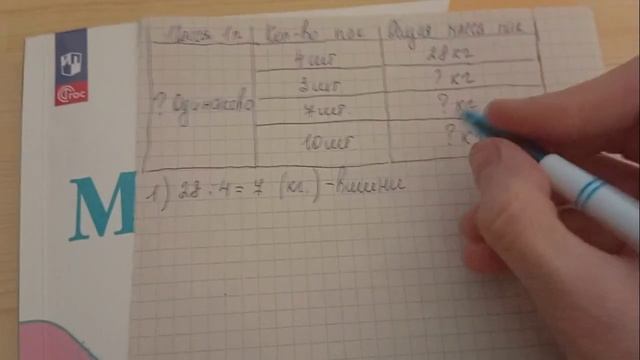 Масса 1п Кол-во пос Общая масса пос
4 шт 28 кг
3 шт ? кг
? Одинаково 7 шт. ? кг
10 шт ? к
1) 28 : 4 = 7 (кг.) -
М